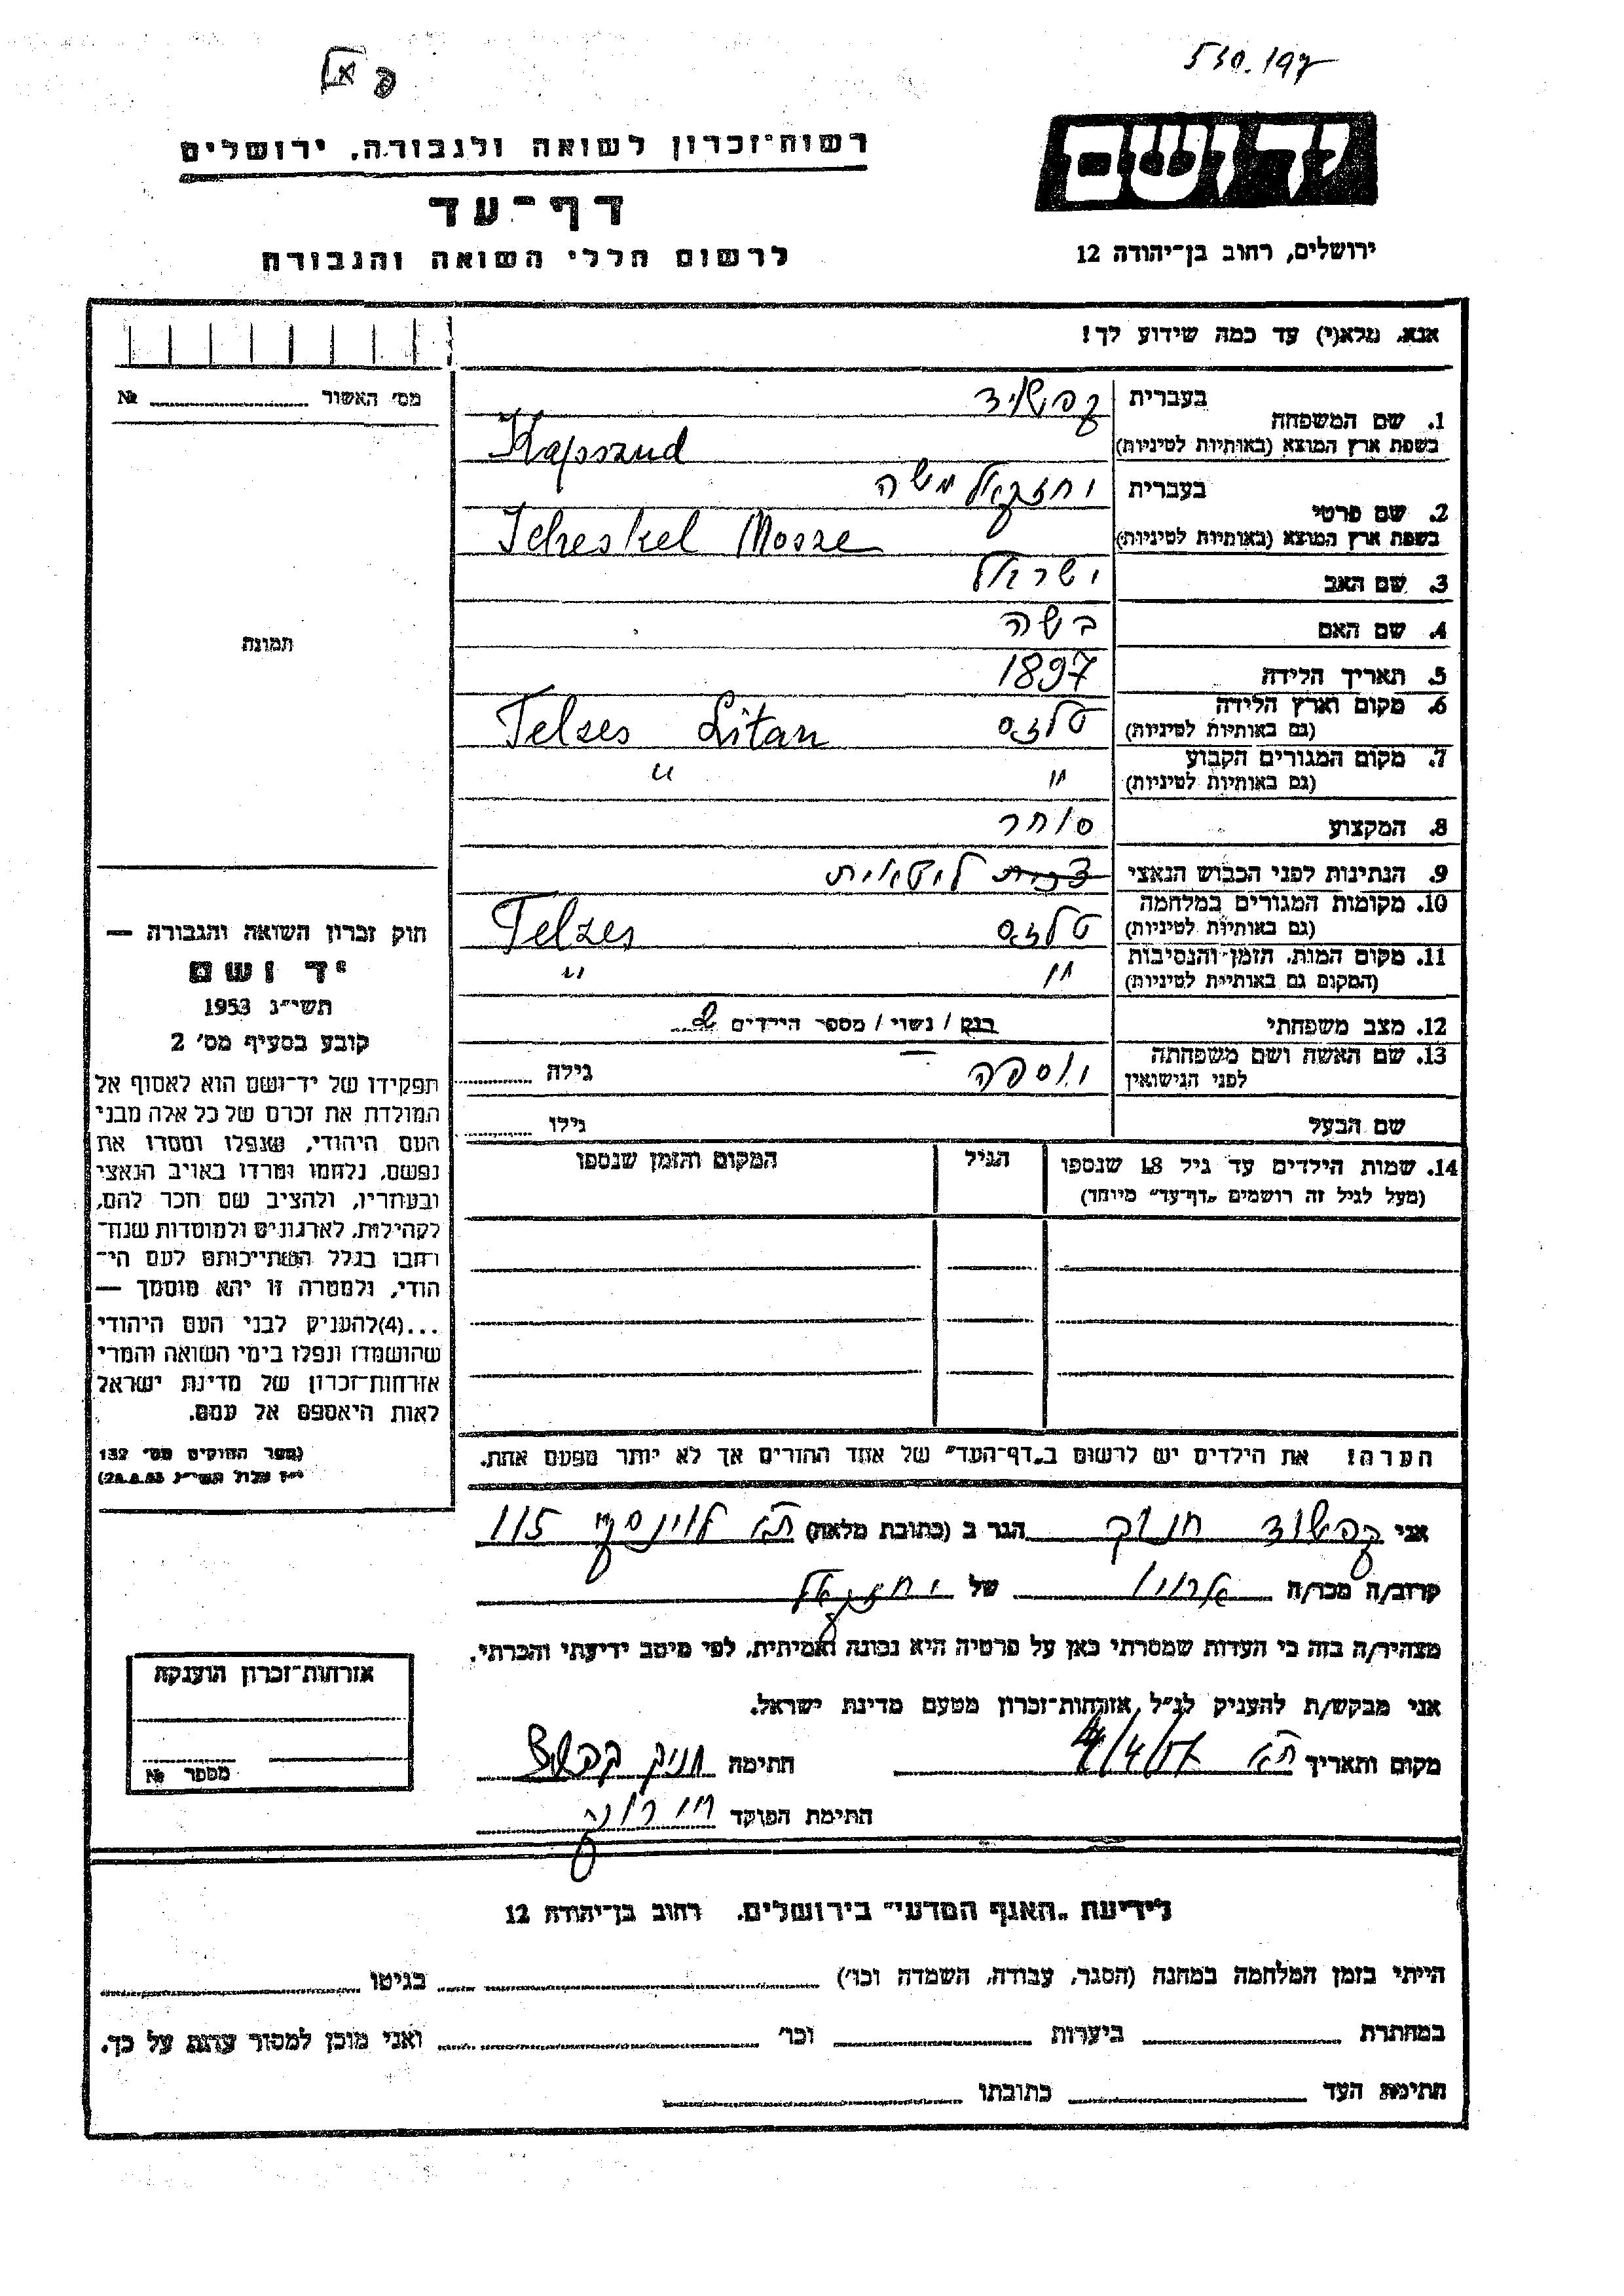 530.197
רשות־זכרון לשואה ולגבורה, ירושלים
יד ושם
דף־עד
לרשום חללי השואה והגבורה
ירושלים, רחוב בן־יהודה 12
אנא, מלא(י) עד כמה שידוע לך!
מס' האשור № 
1. שם המשפחה בעברית קפשוד
בשפת ארץ המוצא (באותיות לטיניות) Kapszud
2. שם פרטי בעברית יחזקאל משה
בשפת ארץ המוצא (באותיות לטיניות) Icheskel Mosze
3. שם האב ישראל
4. שם האם בשה
5. תאריך הלידה 1897
6. מקום וארץ הלידה (גם באותיות לטיניות) טלזס Telzes Litan
7. מקום המגורים הקבוע (גם באותיות לטיניות) " "
8. המקצוע סוחר
9. הנתינות לפני הכבוש הנאצי ליטאית
10. מקומות המגורים במלחמה (גם באותיות לטיניות) טלזס Telzes
11. מקום המות, הזמן והנסיבות (המקום גם באותיות לטיניות) " "
12. מצב משפחתי רווק / נשוי / מספר הילדים 2
13. שם האשה ושם משפחתה לפני הנישואין יוספה גילה
שם הבעל גילו
14. שמות הילדים עד גיל 18 שנספו הגיל המקום והזמן שנספו
(מעל לגיל זה רושמים „דף־עד” מיוחד)
הערה! את הילדים יש לרשום ב„דף־העד” של אחד ההורים אך לא יותר מפעם אחת.
תמונה
חוק זכרון השואה והגבורה —
יד ושם
תשי״ג 1953
קובע בסעיף מס' 2
תפקידו של יד־ושם הוא לאסוף אל
המולדת את זכרם של כל אלה מבני
העם היהודי, שנפלו ומסרו את
נפשם, נלחמו ומרדו באויב הנאצי
ובעוזריו, ולהציב שם וזכר להם,
לקהילות, לארגונים ולמוסדות שנח־
רבו בגלל השתייכותם לעם הי־
הודי, ולמטרה זו יהא מוסמך —
...(4)להעניק לבני העם היהודי
שהושמדו ונפלו בימי השואה והמרי
אזרחות־זכרון של מדינת ישראל
לאות היאספם אל עמם.
(ספר החוקים מס' 132
י״ז אלול תשי״ג 28.8.53)
אני קפשוד חנוך הגר ב (כתובת מלאה) ת״א לוינסקי 115
קרוב/ה מכר/ה של יחזקאל
מצהיר/ה בזה כי העדות שמסרתי כאן על פרטיה היא נכונה ואמיתית, לפי מיטב ידיעתי והכרתי.
אני מבקש/ת להעניק לנ״ל אזרחות־זכרון מטעם מדינת ישראל.
מקום ותאריך ת״א חתימה חנוך קפשוד
חתימת הפוקד
אזרחות־זכרון הוענקה
מספר №
לידיעת „האגף המדעי” בירושלים, רחוב בן־יהודה 12
הייתי בזמן המלחמה במחנה (הסגר, עבודה, השמדה וכו') בגיטו
במחתרת ביערות וכו' ואני מוכן למסור עדות על כך.
חתימת העד כתובתו